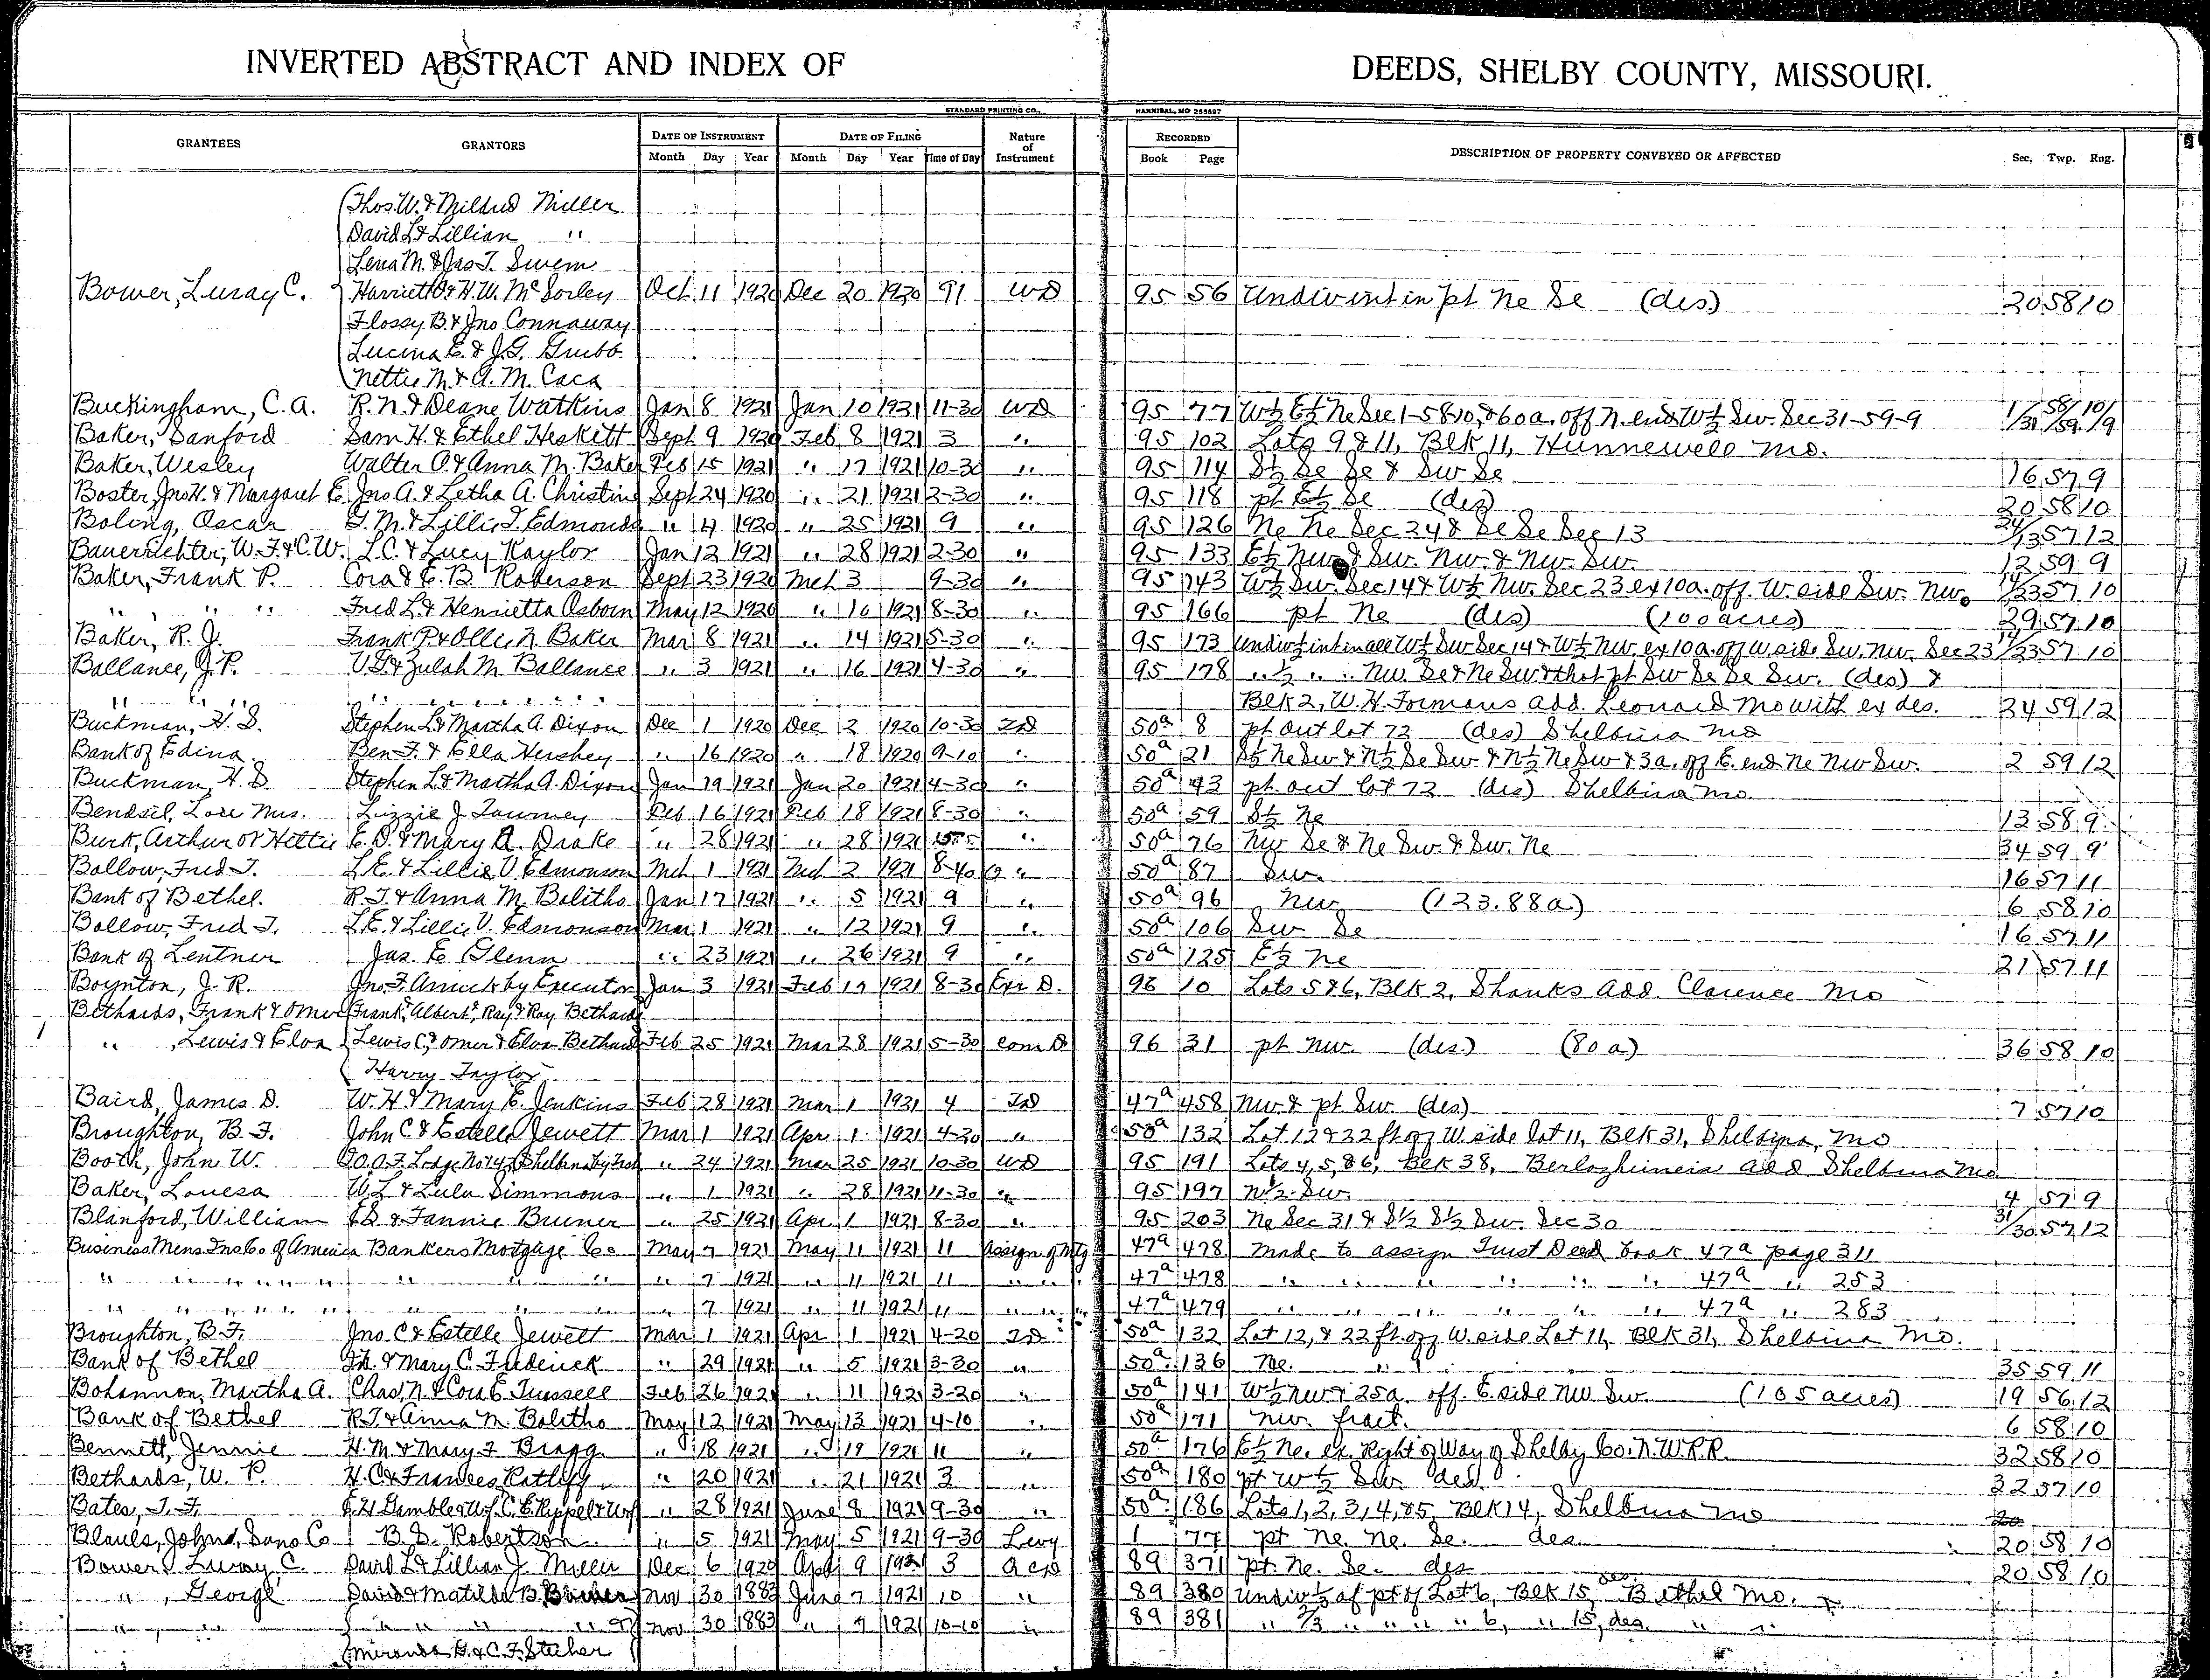 INVERTED ABSTRACT AND INDEX OF DEEDS, SHELBY COUNTY, MISSOURI.
STANDARD PRINTING CO., HANNIBAL, MO 255597
GRANTEES GRANTORS DATE OF INSTRUMENT DATE OF FILING Nature of Instrument RECORDED DESCRIPTION OF PROPERTY CONVEYED OR AFFECTED Sec, Twp. Rng.
Month Day Year Month Day Year Time of Day Book Page
Thos. W. & Mildred Miller
David L & Lillian "
Lena M. & Jas T. Swem
Bower, Luray C. Harriett & H. W. McSorley Oct 11 1920 Dec 20 1920 91 WD 95 56 Undiv int in pt Ne Se (des) 20 58 10
Flossy B. & Jno Connaway
Lucina E. & J. G. Grubb
Nettie M. & A. M. Caca
Buckingham, C. A. R. N. & Deane Watkins Jan 8 1921 Jan 10 1921 11-30 WD 95 77 W½ E½ Ne Sec 1-58-10, & 60a. off N. end W½ Sw. Sec 31-59-9 1/31 58/59 10/9
Baker, Sanford Sam H. & Ethel Heskett Sept 9 1920 Feb 8 1921 3 " 95 102 Lots 9 & 11, Blk 11, Hunnewell Mo.
Baker, Wesley Walter O. & Anna M. Baker Feb 15 1921 " 17 1921 10-30 " 95 114 S½ Se Se & Sw Se 16 57 9
Boster, Jno H. & Margaret E. Jno A. & Letha A. Christine Sept 24 1920 " 21 1921 2-30 " 95 118 pt E½ Se (des) 20 58 10
Boling, Oscar T. M. & Lillie J. Edmonds " 4 1920 " 25 1921 9 " 95 126 Ne Ne Sec 24 & Se Se Sec 13 24/13 57 12
Bauerrichter, W. F. & C. W. L. C. & Lucy Kaylor Jan 12 1921 " 28 1921 2-30 " 95 133 E½ Nw & Sw. Nw. & Nw. Sw. 12 59 9
Baker, Frank P. Cora & E. B. Roberson Sept 23 1920 Mch 3 9-30 " 95 143 W½ Sw. Sec 14 & W½ Nw. Sec 23 ex 10a. off W. side Sw. Nw. 14/23 57 10
" , " " Fred L. & Henrietta Osborn May 12 1920 " 10 1921 8-30 " 95 166 pt Ne (des) (100 acres) 29 57 10
Baker, R. J. Frank P. & Ollie N. Baker Mar 8 1921 " 14 1921 5-30 " 95 173 Undiv ½ int in all W½ Sw Sec 14 & W½ Nw. ex 10a. off W. side Sw. Nw. Sec 23 14/23 57 10
Ballance, J. P. V. G. & Zulah M. Ballance " 3 1921 " 16 1921 4-30 " 95 178 " ½ " " Nw. Se & Ne Sw & that pt Sw Se Se Sw. (des) &
" " " " " " " Blk 2, W. H. Formans add. Leonard Mo with ex des. 24 59 12
Buckman, H. S. Stephen L. & Martha A. Dixon Dec 1 1920 Dec 2 1920 10-30 TD 50a 8 pt out lot 72 (des) Shelbina Mo
Bank of Edina Ben F. & Ella Hershey " 16 1920 " 18 1920 9-10 " 50a 21 S½ Ne Sw & N½ Se Sw & N½ Ne Sw & 3a. off E. end Ne Nw Sw. 2 59 12
Buckman, H. S. Stephen L. & Martha A. Dixon Jan 19 1921 Jan 20 1921 4-30 " 50a 43 pt out lot 72 (des) Shelbina Mo
Bendsil, Lore Mrs. Lizzie J. Towney Feb 16 1921 Feb 18 1921 8-30 " 50a 59 S½ Ne 13 58 9
Burk, Arthur or Hettie E. O. & Mary A. Drake " 28 1921 " 28 1921 " 50a 76 Nw Se & Ne Sw. & Sw. Ne 34 59 9
Bollow, Fred T. L. E. & Lillie V. Edmonson Mch 1 1921 Mch 2 1921 8-40 " 50a 87 Sw. 16 57 11
Bank of Bethel. R. T. & Anna M. Bolitho Jan 17 1921 " 5 1921 9 " 50a 96 Nw (123.88a.) 6 58 10
Bollow, Fred T. L. E. & Lillie V. Edmonson Mar 1 1921 " 12 1921 9 " 50a 106 Sw Se 16 57 11
Bank of Lentner Jas. E Glenn " 23 1921 " 26 1921 9 " 50a 125 E½ Ne 21 57 11
Boynton, J. R. Jno. F. Amick by Executor Jan 3 1921 Feb 19 1921 8-30 Exr D. 96 10 Lots 5 & 6, Blk 2, Shanks Add. Clarence Mo
Bethards, Frank & Omer Frank, Albert, Ray & Roy Bethards
" , Lewis & Elva Lewis C, & Omer & Elva Bethards Feb 25 1921 Mar 28 1921 5-30 Com D. 96 31 pt Nw. (des.) (80 a) 36 58 10
Harry Taylor
Baird, James D. W. H & Mary E. Jenkins Feb 28 1921 Mar 1 1921 4 TD 47a 458 Nw & pt Sw. (des) 7 57 10
Broughton, B. F. John C & Estelle Jewett Mar 1 1921 Apr 1 1921 4-20 " 50a 132 Lot 12 & 22 ft off W side lot 11, Blk 31, Shelbina, Mo
Booth, John W. I. O. O. F. Lodge No 147, Shelbina by Trus " 24 1921 Mar 25 1921 10-30 WD 95 191 Lots 4, 5, & 6, Blk 38, Add Shelbina Mo
Baker, Louesa W. L. & Lula Simmons " 1 1921 " 28 1921 11-30 " 95 197 N½ Sw. 4 57 9
Blanford, William & Fannie Bruner " 25 1921 Apr 1 1921 8-30 " 95 203 Ne Sec 31 & S½ S½ Sw. Sec 30 31/30 57 12
Business Mens Ins Co of America Bankers Mortgage Co May 7 1921 May 11 1921 11 Assign of Mtg 47a 478 Made to assign Trust Deed book 47a page 311
" " " " " " " " " " 7 1921 " 11 1921 11 " " 47a 478 " " " " " 47a " 253
" " " " " " " " " " 7 1921 " 11 1921 11 " " 47a 479 " " " " " 47a " 283
Broughton, B. F. Jno. C & Estelle Jewett Mar 1 1921 Apr 1 1921 4-20 TD 50a 132 Lot 12, & 22 ft. off W. side Lot 11, Blk 31, Shelbina Mo.
Bank of Bethel & Mary C. Frederick " 29 1921 " 5 1921 3-30 " 50a 136 Ne. 35 59 11
Bohannon, Martha A. Chas. N. & Cora E. Trussell Feb 26 1921 " 11 1921 3-20 " 50a 141 W½ Nw & 25a off E. side Nw Sw. (105 acres) 19 56 12
Bank of Bethel R. T. & Anna M. Bolitho May 12 1921 May 13 1921 4-10 " 50a 171 Nw. fract. 6 58 10
Bennett, Jennie H. M. & Mary F Bragg " 18 1921 " 19 1921 11 " 50a 176 E½ Ne. ex. Right of Way of Shelby Co. N. W. R. R. 32 58 10
Bethards, W. P. H. C & Frances Ratliff " 20 1921 " 21 1921 3 " 50a 180 pt W½ Sw. des. 32 57 10
Bates, T. F. E. H Gamble & Wf. C. E. Rippel & Wf " 28 1921 June 8 1921 9-30 " 50a 186 Lots 1, 2, 3, 4, & 5, Blk 14, Shelbina Mo
Blauls, John, Sons Co B. S. Robertson " 5 1921 May 5 1921 9-30 Levy 1 77 pt Ne. Ne. Se. des. 20 58 10
Bower, Luray C. David L. & Lillian J. Miller Dec 6 1920 Apr 9 1921 3 89 371 pt. Ne. Se. des 20 58 10
" , George David & Matilda B. Nov 30 1883 June 7 1921 10 " 89 380 Undiv ½ of pt of Lot 6, Blk 15 des Bethel Mo.
" " " " " Nov 30 1883 " 7 1921 10-10 " 89 381 " ⅔ " " " " 6, " 15, des. " "
Miranda G. & C. F. Stecher